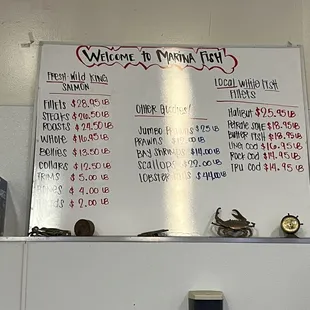 Welcome to Marina Fish
Fresh Wild King
Salmon
Fillets $28.95 LB
Steaks $26.50 LB
Roasts $24.50 LB
Whole $16.95 LB
Bellies $13.50 LB
Collars $12.50 LB
Trims $5.00 LB
$4.00 LB
$2.00 LB
Other
Jumbo $25 LB
Prawns LB
Bay Shrimp $14.00 LB
Scallops LB
Lobster $44.00
Local White Fish
Fillets
Halibut $25.95 LB
Petrale Sole $18.95 LB
Butter Fish $18.95 LB
Ling Cod $16.95 LB
Rock Cod LB
Tru Cod $14.95 LB